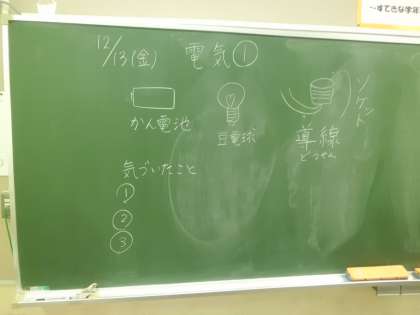 〜すてきな学年
12/13(金) 電気①
かん電池
豆電球
導線
どうせん
ソケット
気づいたこと
①
②
③